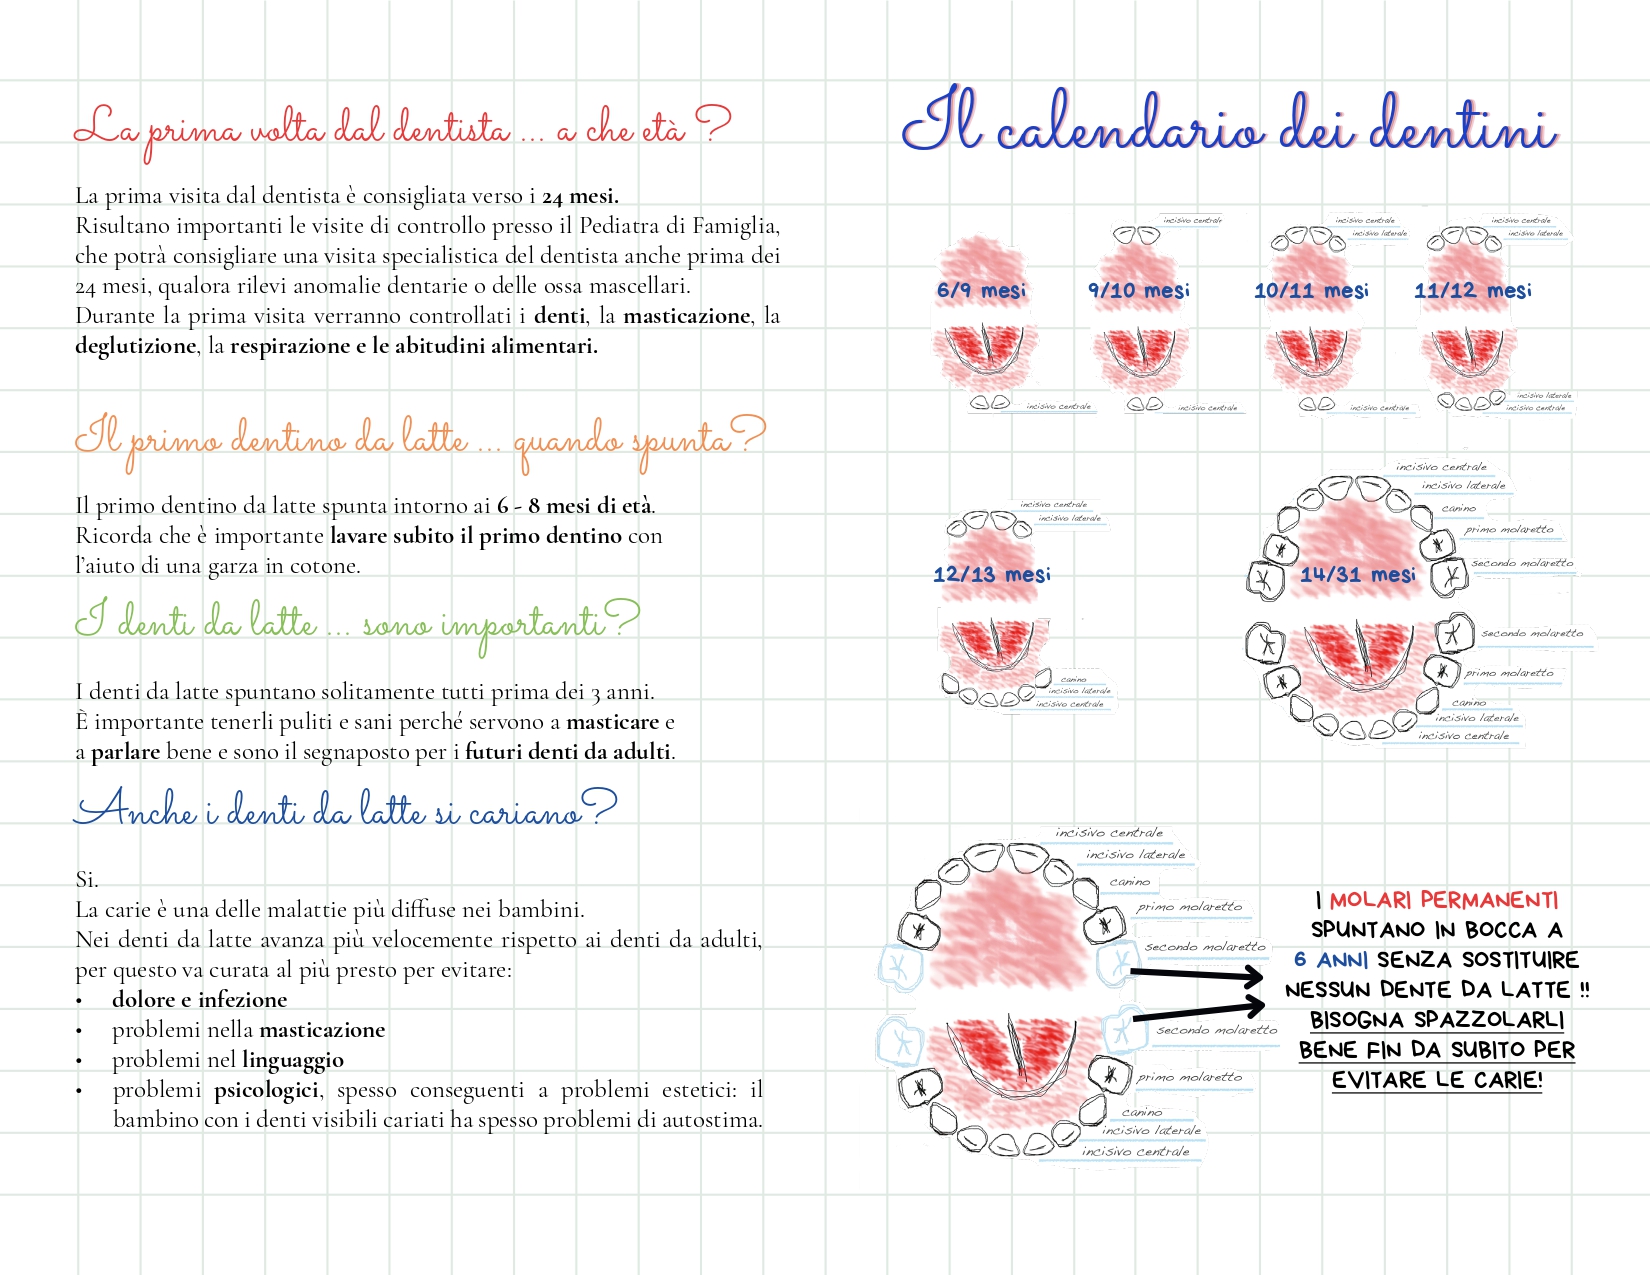 La prima volta dal dentista ... a che età ?
La prima visita dal dentista è consigliata verso i 24 mesi.
Risultano importanti le visite di controllo presso il Pediatra di Famiglia,
che potrà consigliare una visita specialistica del dentista anche prima dei
24 mesi, qualora rilevi anomalie dentarie o delle ossa mascellari.
Durante la prima visita verranno controllati i denti, la masticazione, la
deglutizione, la respirazione e le abitudini alimentari.
Il primo dentino da latte ... quando spunta?
Il primo dentino da latte spunta intorno ai 6 - 8 mesi di età.
Ricorda che è importante lavare subito il primo dentino con
l'aiuto di una garza in cotone.
I denti da latte ... sono importanti?
I denti da latte spuntano solitamente tutti prima dei 3 anni.
È importante tenerli puliti e sani perché servono a masticare e
a parlare bene e sono il segnaposto per i futuri denti da adulti.
Anche i denti da latte si cariano?
Si.
La carie è una delle malattie più diffuse nei bambini.
Nei denti da latte avanza più velocemente rispetto ai denti da adulti,
per questo va curata al più presto per evitare:
• dolore e infezione
• problemi nella masticazione
• problemi nel linguaggio
• problemi psicologici, spesso conseguenti a problemi estetici: il
bambino con i denti visibili cariati ha spesso problemi di autostima.
Il calendario dei dentini
6/9 mesi
incisivo centrale
incisivo centrale
9/10 mesi
incisivo centrale
incisivo centrale
incisivo laterale
10/11 mesi
incisivo centrale
incisivo centrale
incisivo laterale
11/12 mesi
incisivo laterale
incisivo centrale
incisivo centrale
incisivo laterale
12/13 mesi
canino
incisivo laterale
incisivo centrale
incisivo centrale
incisivo laterale
canino
primo molaretto
secondo molaretto
14/31 mesi
secondo molaretto
primo molaretto
canino
incisivo laterale
incisivo centrale
incisivo centrale
incisivo laterale
canino
primo molaretto
secondo molaretto
secondo molaretto
primo molaretto
canino
incisivo laterale
incisivo centrale
I MOLARI PERMANENTI
SPUNTANO IN BOCCA A
6 ANNI SENZA SOSTITUIRE
NESSUN DENTE DA LATTE !!
BISOGNA SPAZZOLARLI
BENE FIN DA SUBITO PER
EVITARE LE CARIE!